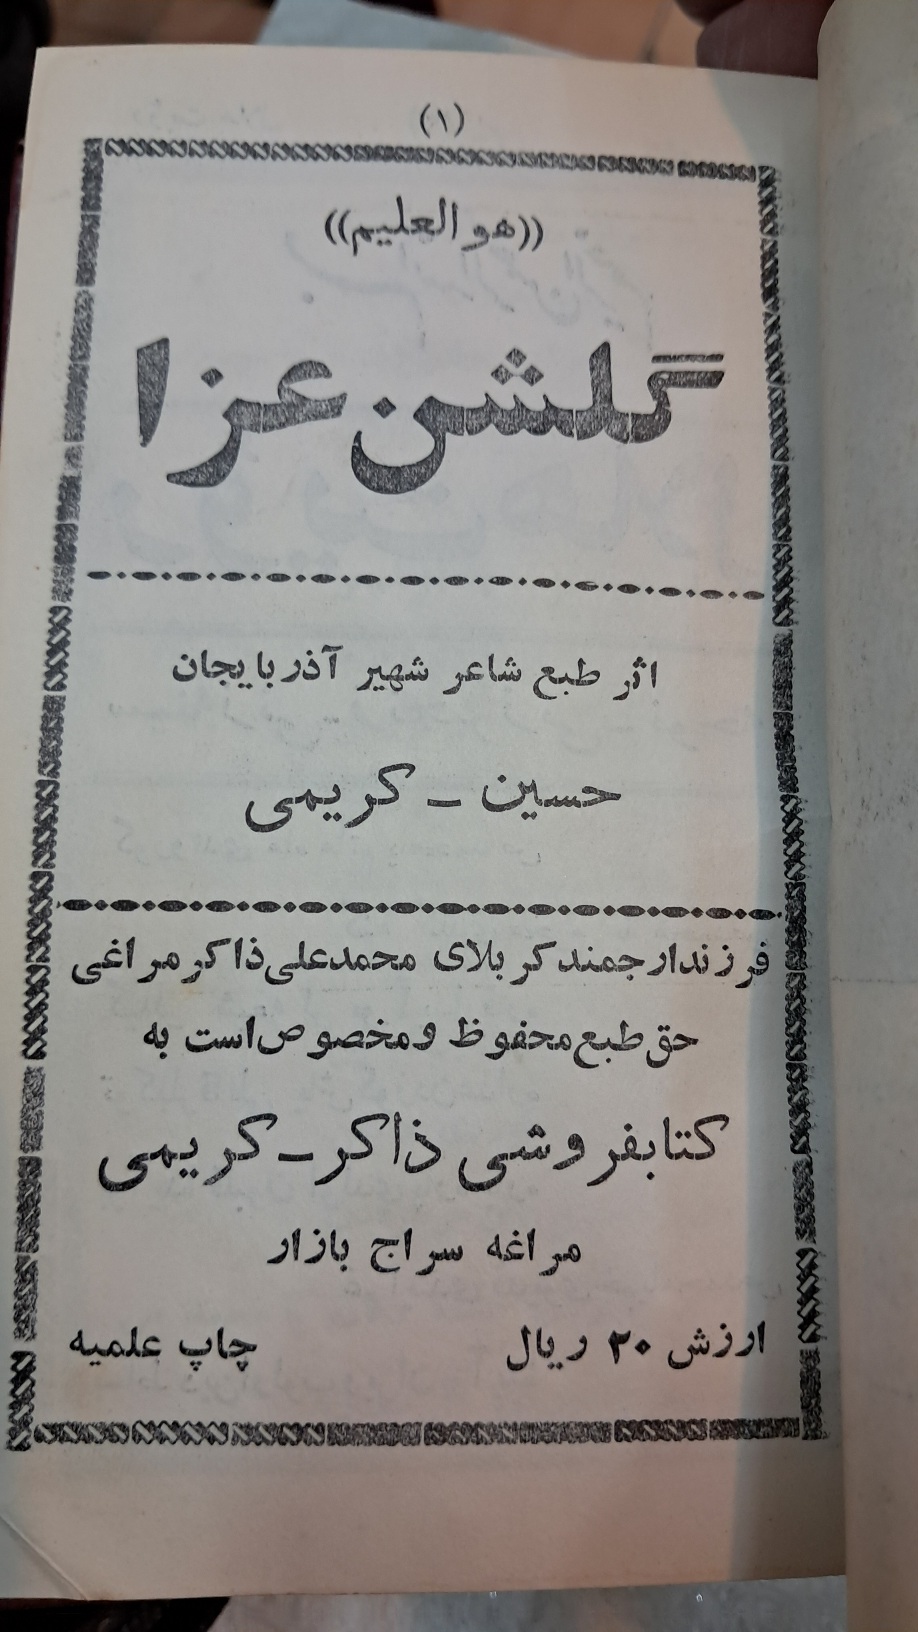 (۱)
((هو العلیم))
گلشن عزا
اثر طبع شاعر شهیر آذربایجان
حسین - کریمی
فرزندارجمند کربلای محمدعلی ذاکر مراغی
حق طبع محفوظ و مخصوص است به
کتابفروشی ذاکر - کریمی
مراغه سراج بازار
ارزش ۲۰ ریال چاپ علمیه